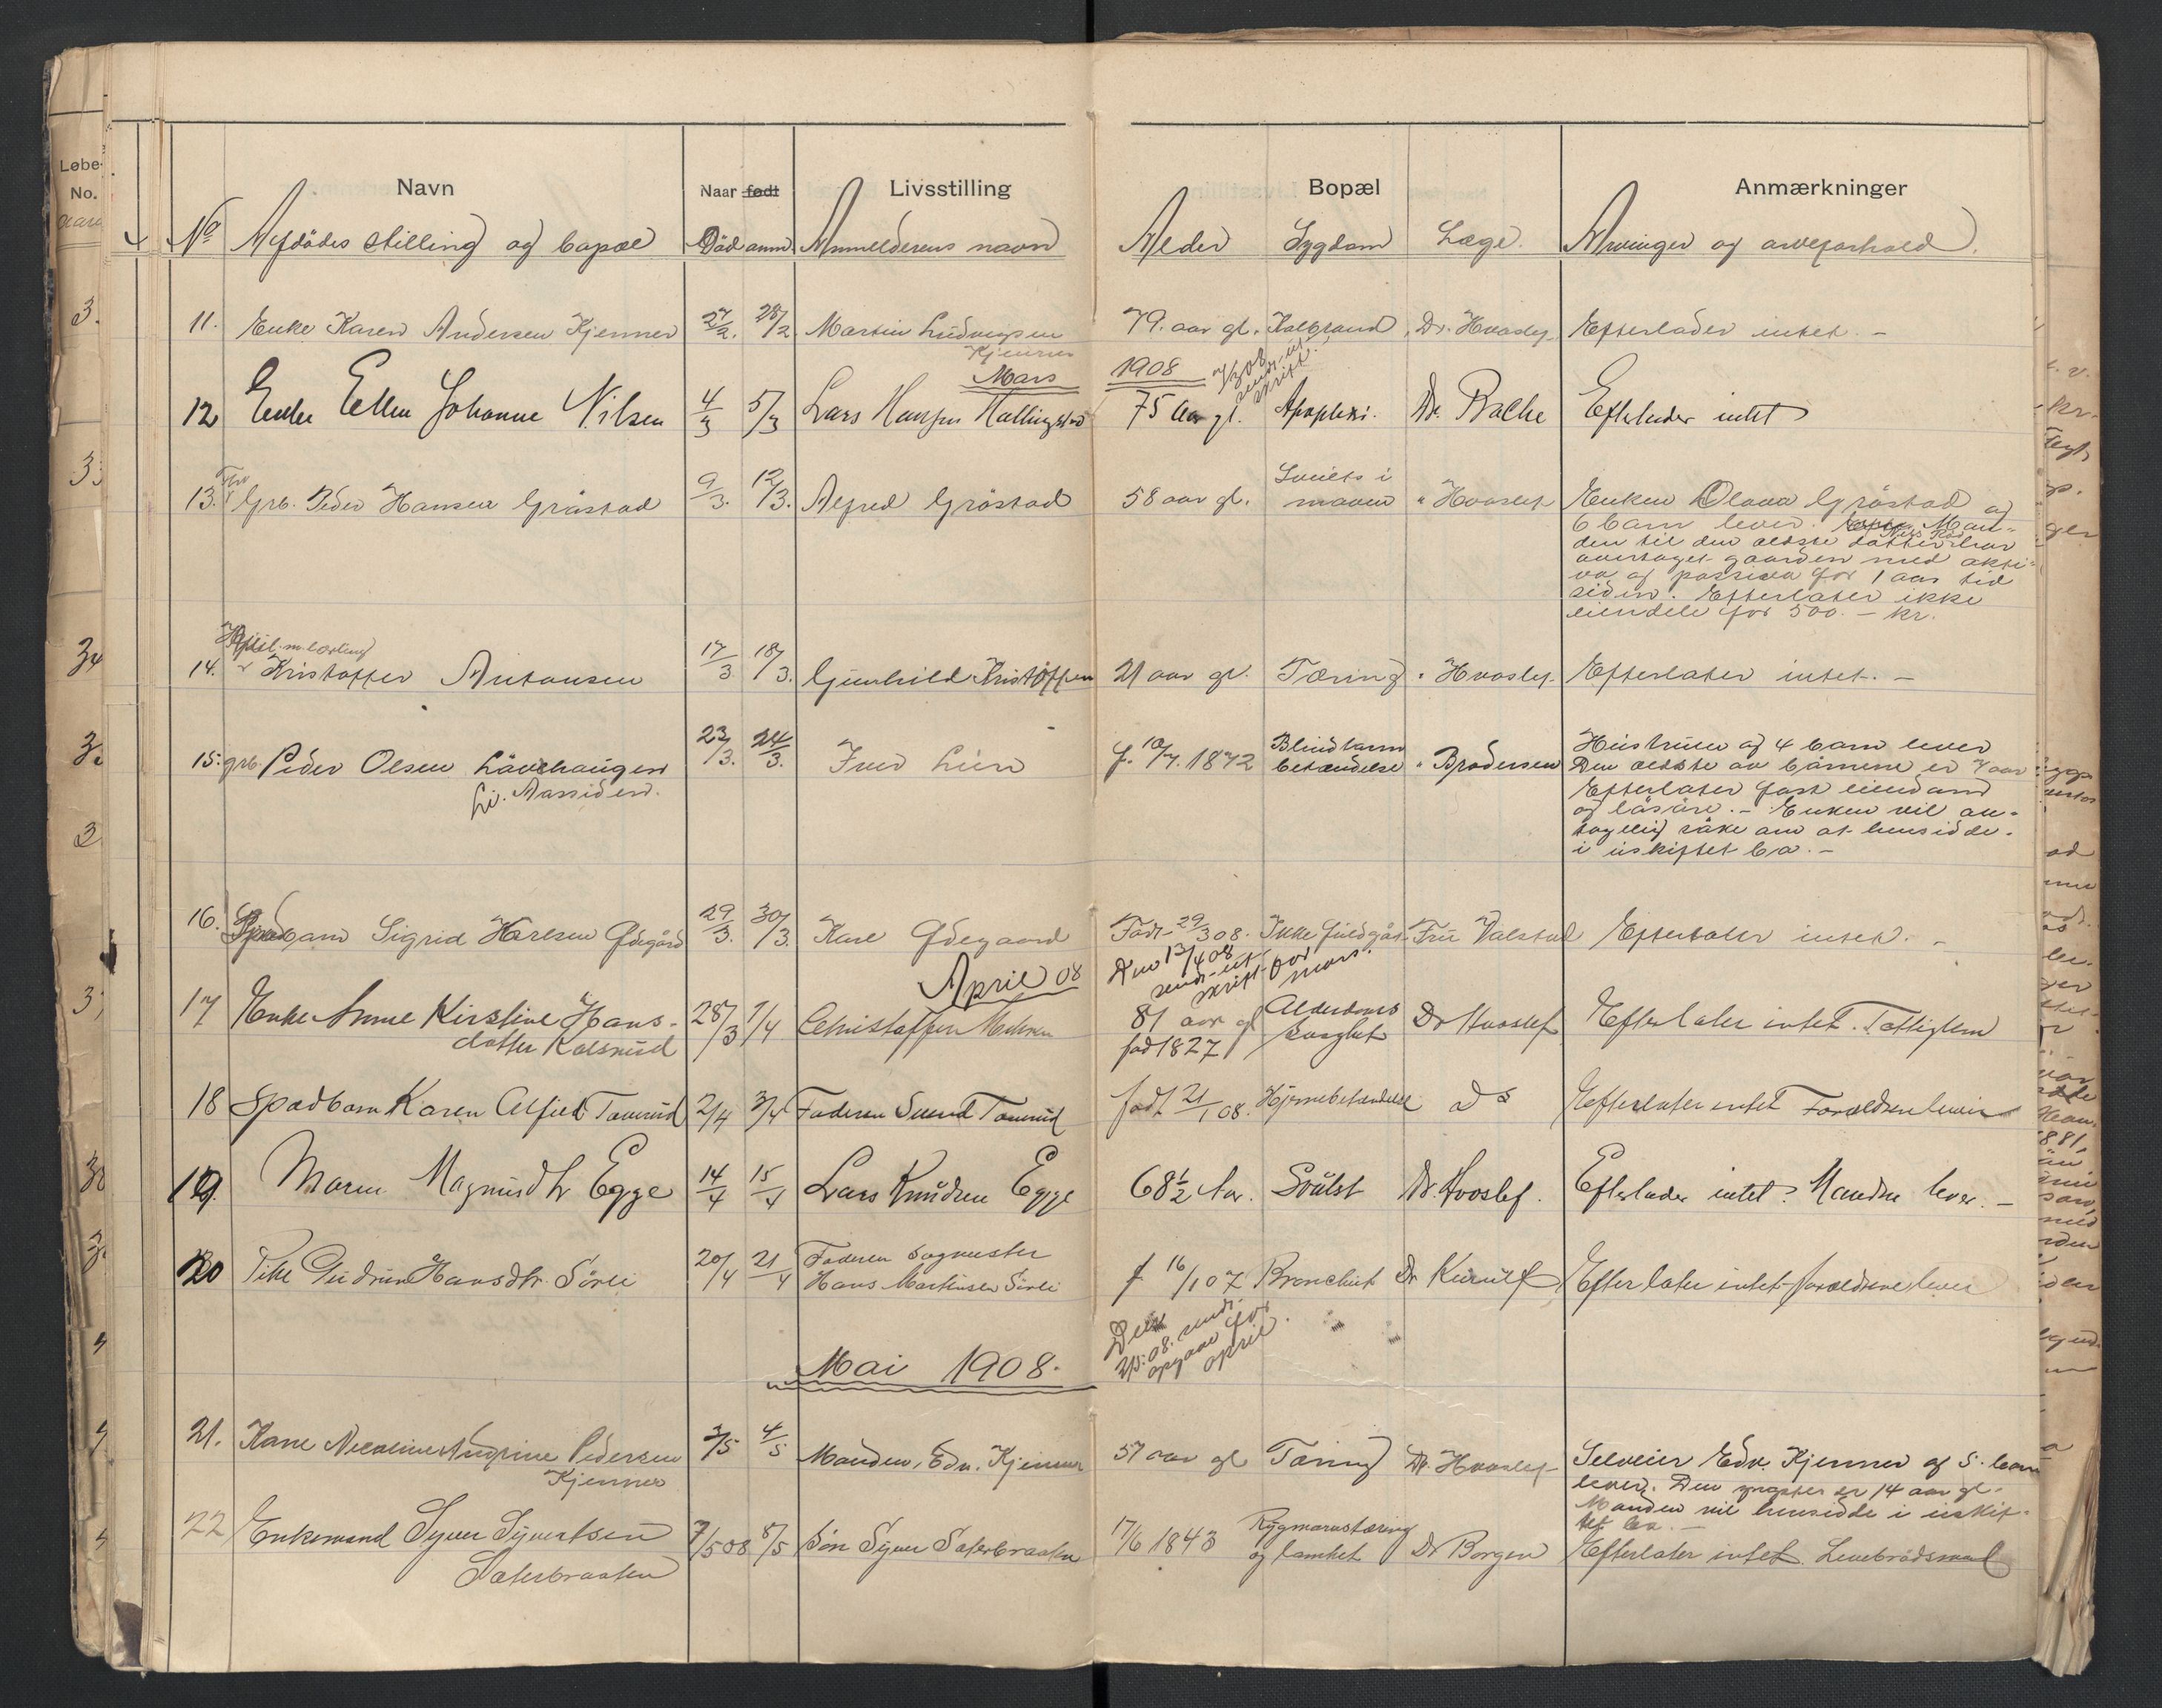 Løbe-
No.
Navn
Naar født
Livsstilling
Bopæl
Anmærkninger
No Afdødes stilling og bopæl
Død anm.
Anmelderens navn
Alder Sygdom Læge. Arvinger og arveforhold.
11. Enke Karen Andersen Kjenner 27/2. 28/2 Martin Ludvigsen
Kjenner
79. aar gl. Kolbrand Dr. Hvoslef Efterlader intet. –
Mars
1908
12 Enke Ellen Johanne Nilsen 4/3 5/3 Lars Hansen Hallingstad 75 Aar gl. Apoplexi. Dr. Bache Efterlader intet
13. Grb. Peder Hansen Gråstad 9/3. 12/3. Alfred Gråstad 58 aar gl.
Svulst i
maven " Hvoslef
Enken Olava Gråstad og
6 barn lever. Man-
den til den ældste datter har
overtaget gaarden med akti-
va og passiva for 1 aar tid
siden. Efterlater ikke
eiendele for 500. – kr.
14. Kristoffer Antonsen 17/3 18/3. Gunhild Kristoffersen 21 aar gl. Tæring " Hvoslef Efterlater intet. –
15. grb. Peder Olsen Låvehaugen
Li. Aassiden.
23/3. 24/3. Iver Lien f. 10/7. 1872
Blindtarm
betændelse " Brodersen
Hustruen og 4 barn lever
Den ældste av barnene er 7 aar
Efterlater fast eiendom
og løsøre. – Enken vil an-
tagelig søke om at hensidde
i uskiftet bo. –
16. Spædbarn Sigrid Karlsen Ødegård 29/3. 30/3. Karl Ødegaard Født 29/3 08. Ikke fuldgåt Fru Valstad Efterlater intet. –
April 08
Den 13/4 08
sendt ut-
skrift for
mars.
17 Enke Anne Kirstine Hans-
datter Kolsrud
28/3 1/4 Christoffer Mehren
81 aar gl
fød 1827
Alderdoms
svaghet
Dr Hvoslef Efterlater intet. Fattiglem
18 Spædbarn Karen Alfild Tomrud 2/4 3/4 Faderen Svend Tomrud født 21/1 08. Hjernebetændelse Ds Efterlater intet Forældrene lever
19. Maren Magnusdtr Egge 14/4 15/4 Lars Knudsen Egge 68½ Aar. Svulst Dr. Hvoslef. Efterlader intet. Manden lever. –
20 Pike Gudrun Hansdtr. Sørli 20/4 21/4
Faderen
Hans Martinsen Sørli
f 16/1 07 Bronchit Dr Efterlater intet forældrene lever
Den
2/5. 08. sendt
opgave for
april.
Mai 1908.
21. Kone Nicoline Andrine Pedersen
Kjenner
3/5 4/5 Manden, Edv. Kjenner 57 aar gl Tæring Dr. Hvoslef
Selveier Edv. Kjenner og 5 barn
lever. Den yngste er 14 aar gl.
Manden vil hensidde i uskif-
tet bo. –
22 Enkemand Syver Syvertsen
Sæterbraaten
7/5 08 8/5 Søn Syver Sæterbraaten 17/6 1843
Rygmarvstæring
og lamhet
Dr Borgen Efterlater intet. Levebrødsmand